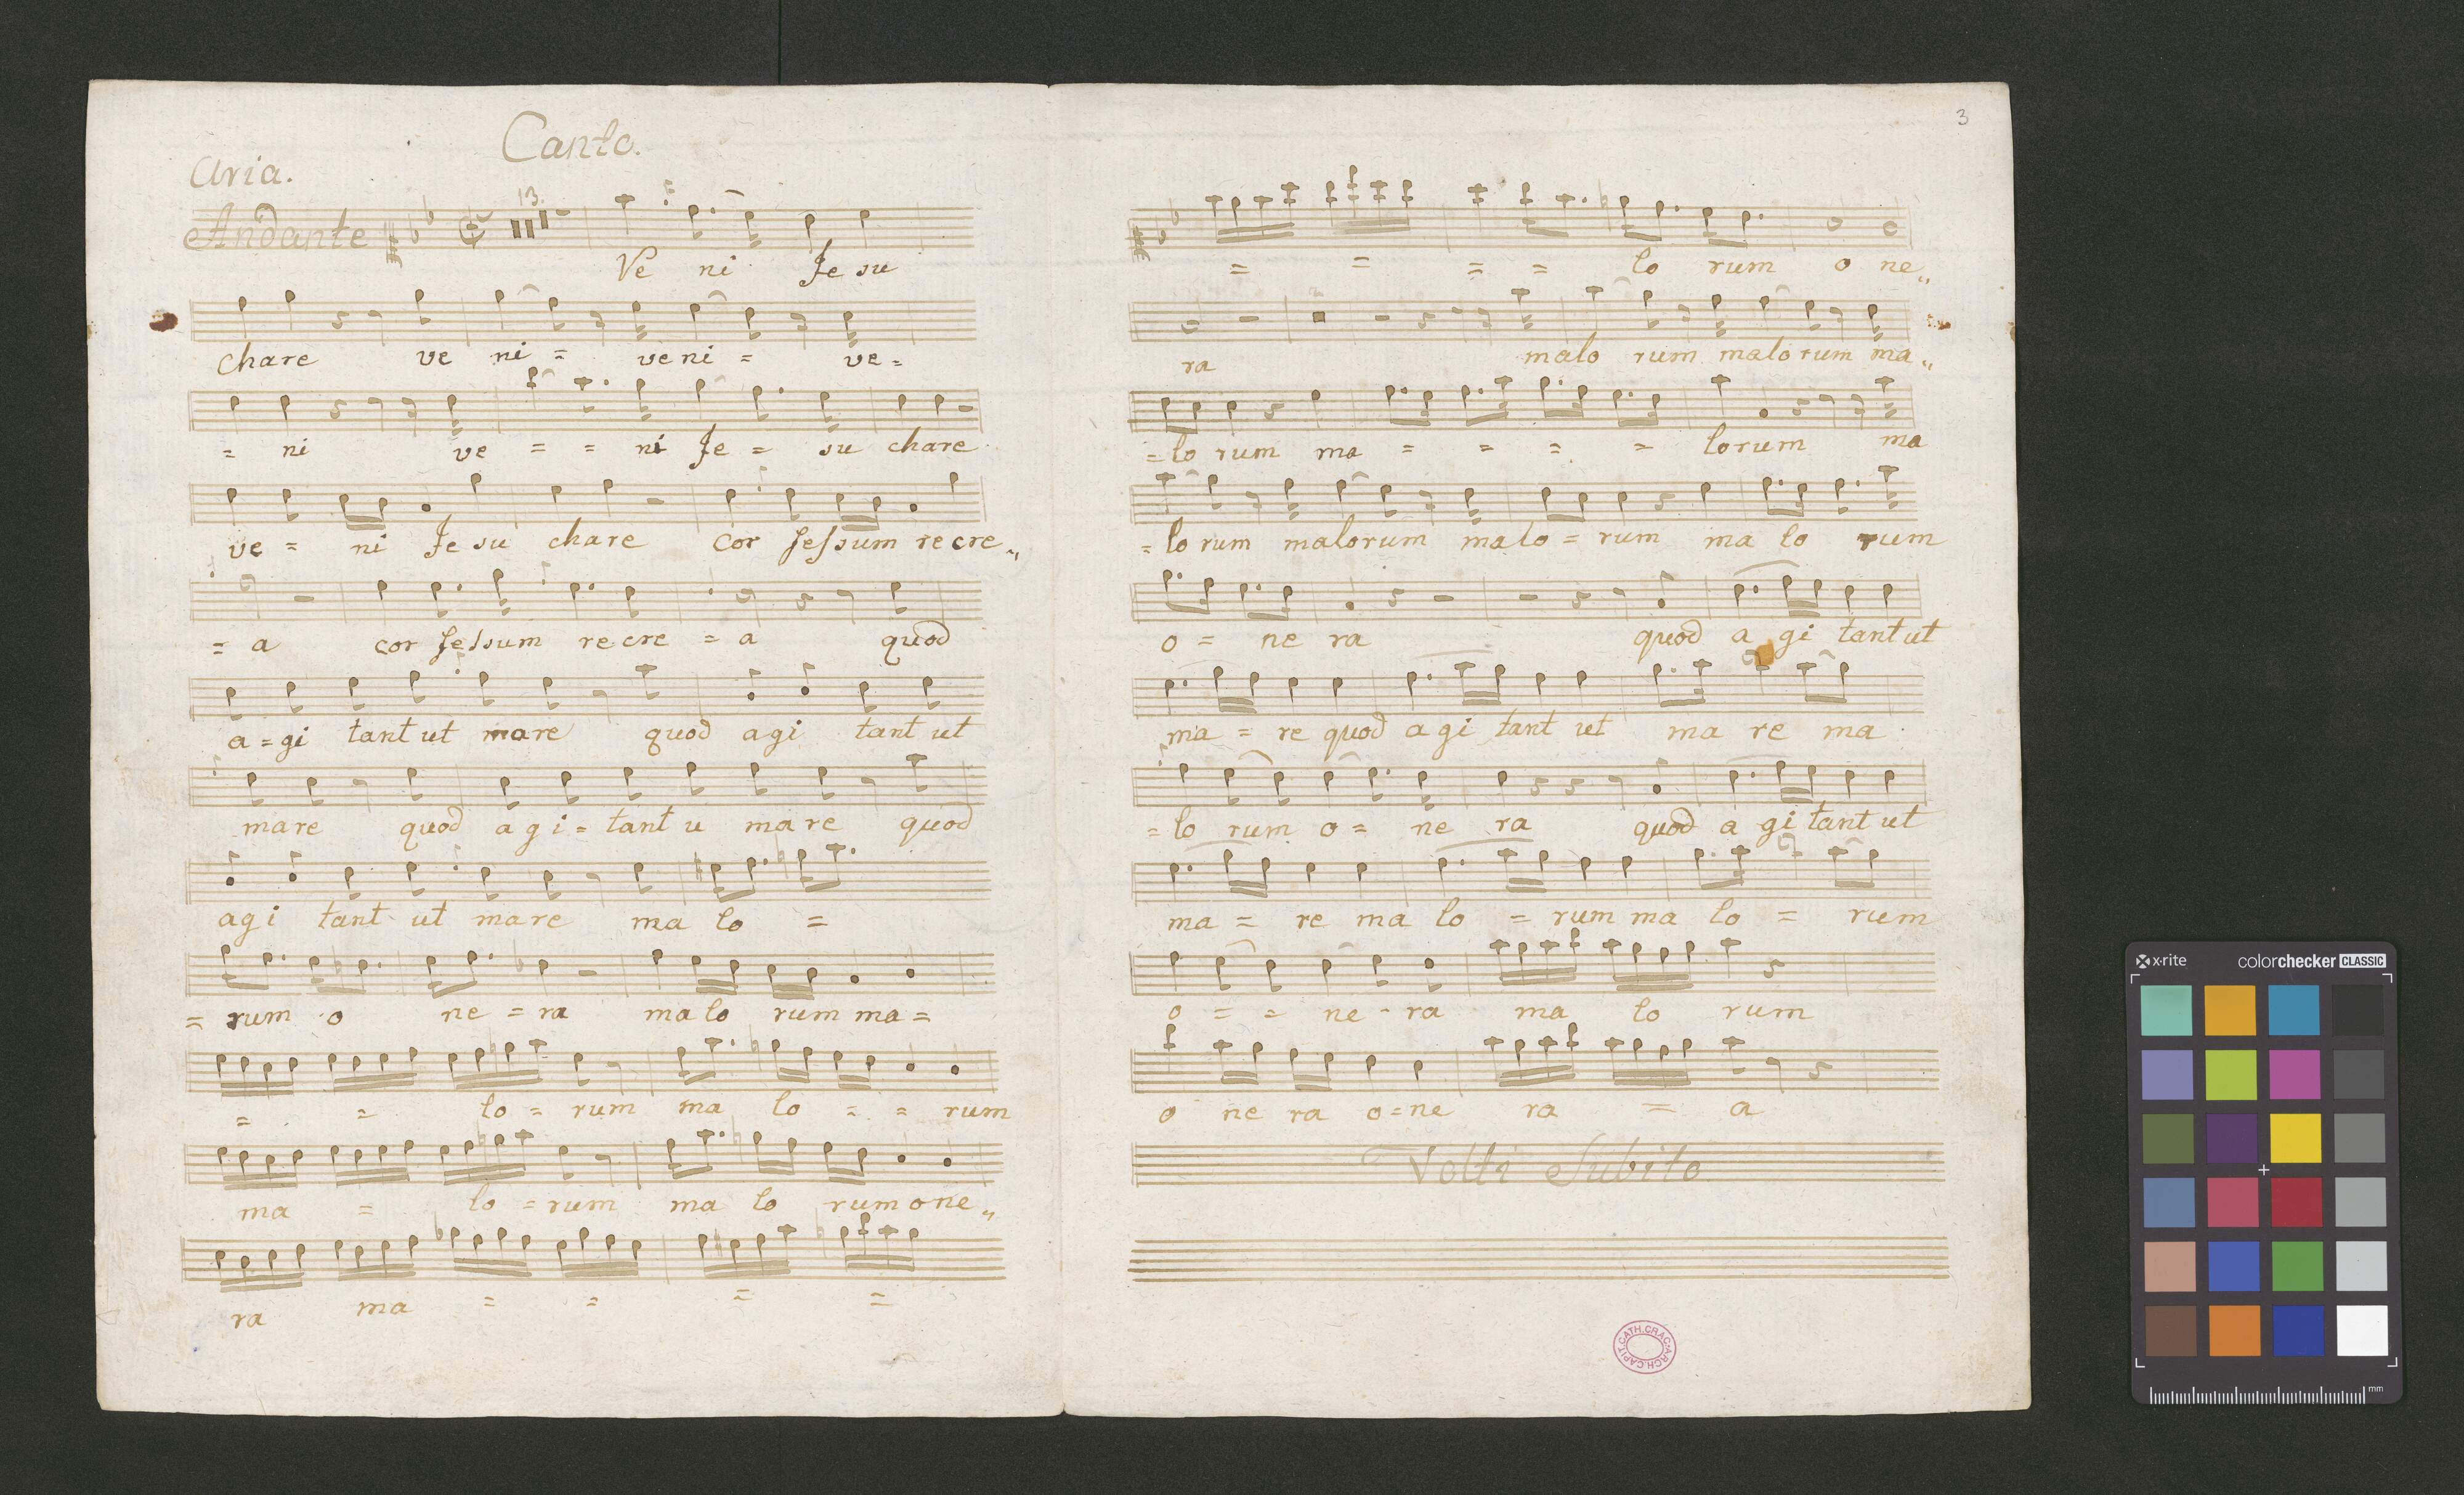 Canto.
Aria.
Andante 13.
Ve ni Je su
chare ve ni = ve ni = ve =
= ni ve = = ni Je = su chare
ve = ni Je su chare cor fessum re cre „
= a cor fessum re cre = a quod
a = gi tant ut mare quod agi tant ut
mare quod a g i = tant u ma re quod
agi tant ut mare ma lo =
= rum o ne = ra ma lo rum ma =
= = lo = rum ma lo = = rum
ma = lo = rum ma lo rum o ne „
ra ma = = = =
3
= = = = lo rum o ne „
ra malo rum malo rum ma „
= lo rum ma = = = = lorum ma
= lo rum malorum ma lo = rum ma lo rum
o = ne ra quod a gi tant ut
ma = re quod a gi tant ut ma re ma
= lo rum o = ne ra quod a gi tant ut
ma = re ma lo = rum ma lo = rum
o = = ne - ra ma lo rum
o ne ra o = ne ra = a
Volti Subito
ARCH.CAPIT.CATH.CRAC.
x·rite colorchecker CLASSIC
mm